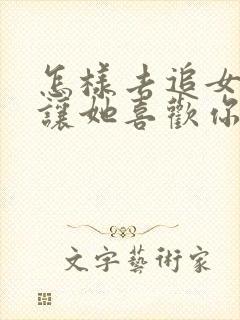 怎樣去追女
讓她喜歡你
文字藝術家